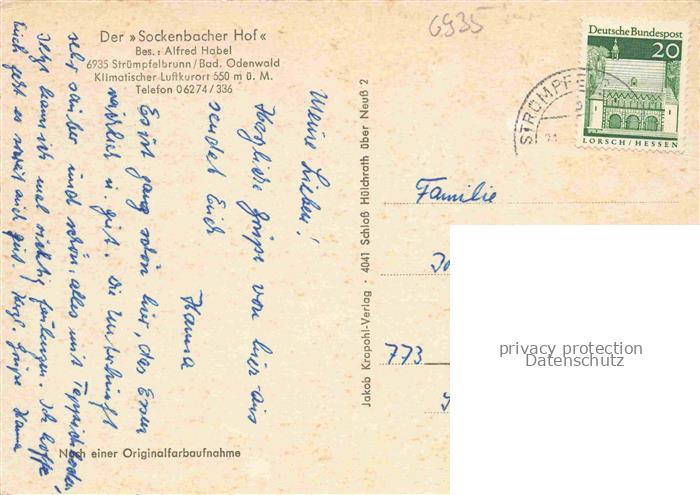 6935
Der »Sockenbacher Hof«
Bes.: Alfred Habel
6935 Strümpfelbrunn/Bad. Odenwald
Klimatischer Luftkurort 550 m ü. M.
Telefon 06274/336
Deutsche Bundespost
20
LORSCH/HESSEN
STRÜMPFE
Meine Lieben!
Herzliche Grüße von hier aus
sendet Euch
Hanna
Es ist ganz schön hier, das Essen
reichlich u. gut. Die Unterkunft
sehr sauber und schön, alles mit Teppichboden
Jetzt kann ich mal richtig faulenzen. Ich hoffe
Euch geht es soweit auch gut. Herzl. Grüße Hanna
Jakob Kropohl-Verlag · 4041 Schloß Hülchrath über Neuß 2
Familie
773
privacy protection
Datenschutz
Nach einer Originalfarbaufnahme